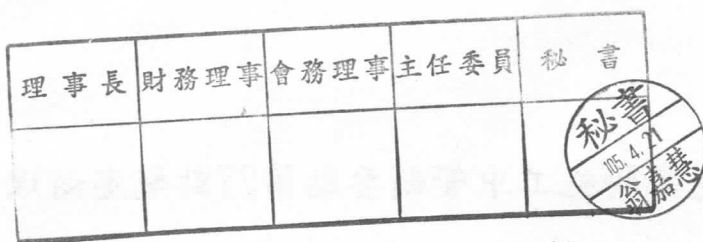 理事長 財務理事 會務理事 主任委員 秘書
秘書
105.4.21
翁嘉慧